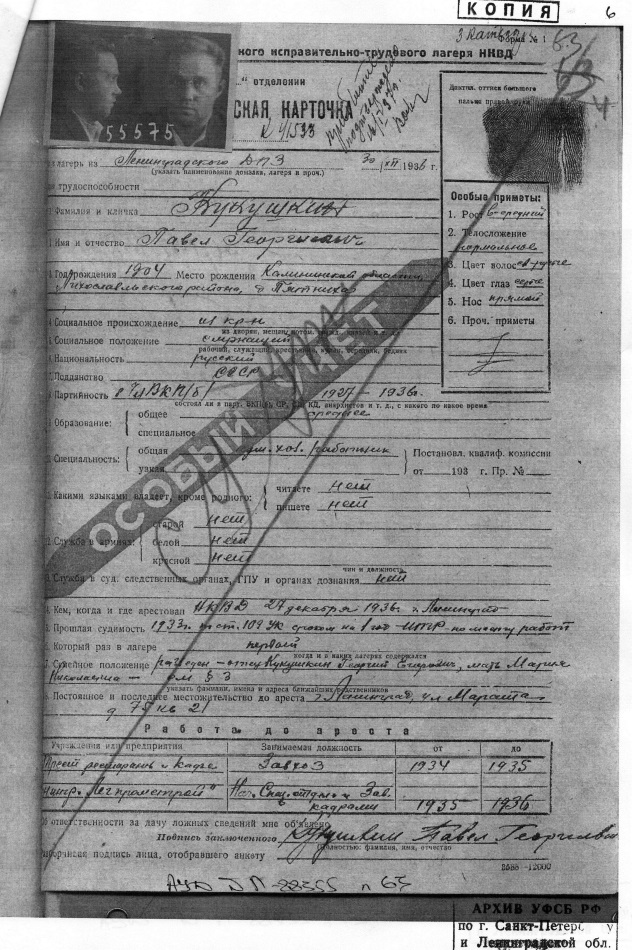 КОПИЯ
6
Форма № 1
ного исправительно-трудового лагеря НКВД
" отделении
СКАЯ КАРТОЧКА
Дактил. оттиск большого
пальца правой руки
55575
лагерь из Ленинградского ДПЗ 30/XII 1936 г.
(указать наименование домзака, лагеря и проч.)
трудоспособности
Фамилия и кличка Кукушкин
Имя и отчество Павел Георгиевич
Год рождения 1904 Место рождения Калининской области,
Лихославльского района, д.
Особые приметы:
1. Рост средний
2. Телосложение
нормальное
3. Цвет волос
4. Цвет глаз серые
5. Нос прямой
6. Проч. приметы
Социальное происхождение из кр-н
Социальное положение служащий
рабочий, служащий,
Национальность русский
Подданство СССР
Партийность ЧлВКП/б/ 1927-1936г.
состоял ли в парт. и т. д., с какого по какое время
Образование: общее среднее
специальное
Специальность: общая работник
узкая
Постановл. квалиф. комиссии
от 193 г. Пр. №
Какими языками владеет, кроме родного: читаете нет
пишете нет
ОСОБЫЙ УЧЕТ
Служба в армиях: старой нет
белой нет
красной нет
чин и должность
Служба в суд. следственных органах, ГПУ и органах дознания нет
Кем, когда и где арестован НКВД 27 декабря 1936г. г. Ленинград
Прошлая судимость 1933г. по ст. 109 УК сроком на 1 год ИТР по месту работ
Который раз в лагере первый
когда и в каких лагерях содержался
Семейное положение разведен - отец Кукушкин Георгий Егорович, мать Мария
Николаевна - см § 3
указать фамилии, имена и адреса ближайших родственников
Постоянное и последнее местожительство до ареста г. Ленинград, ул Марата
д 75 кв 21
Работа до ареста
Учреждения или предприятия Занимаемая должность от до
Трест ресторанов и кафе Завхоз 1934 1935
"Легпромстрой" Нач. Спец. отдела и Зав.
кадрами 1935 1936
Об ответственности за дачу ложных сведений мне объявлено
Подпись заключенного Кукушкин Павел Георгиевич
(полностью: фамилия, имя, отчество)
подпись лица, отобравшего анкету
АРХИВ УФСБ РФ
по г. Санкт-Петерб у
и Ленинградской обл.